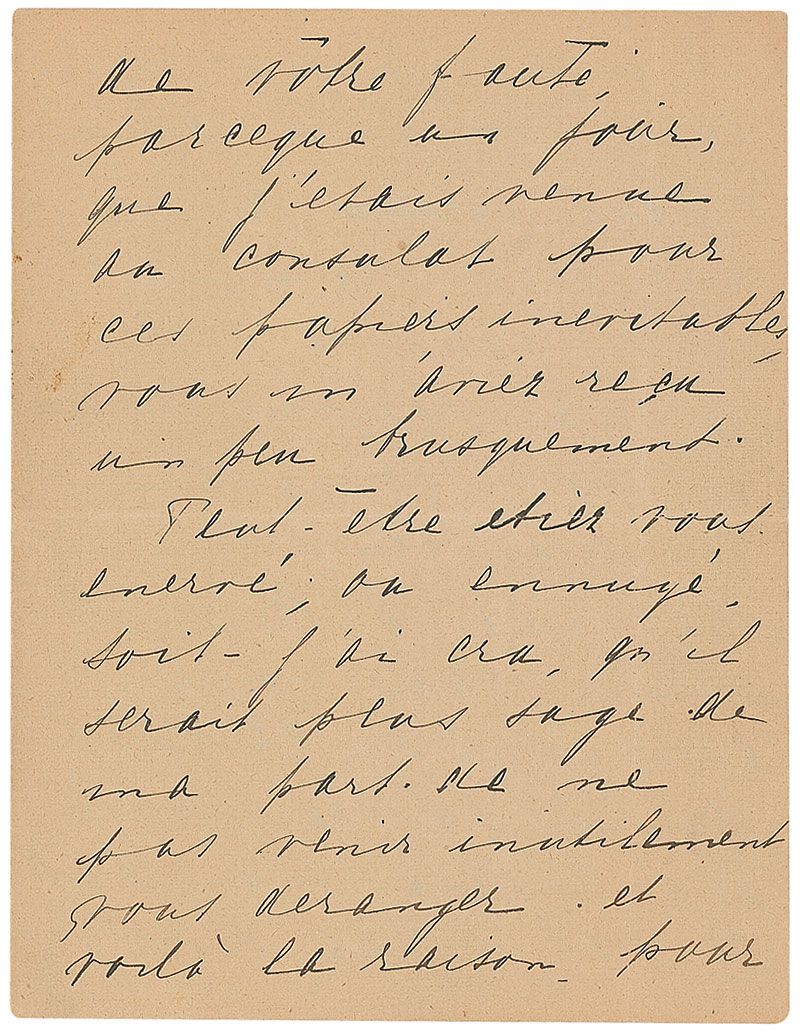 de vôtre faute,
parceque un jour,
que j'etais venue
au consulat pour
ces papiers inevitables,
vous m'aviez reçu
un peu brusquement.
Peut-être etiez vous
enervé; ou ennuyé,
soit- j'ai cru, qu'il
serait plus sage de
ma part. de ne
pas venir inutilement
vous deranger. et
voilà la raison pour